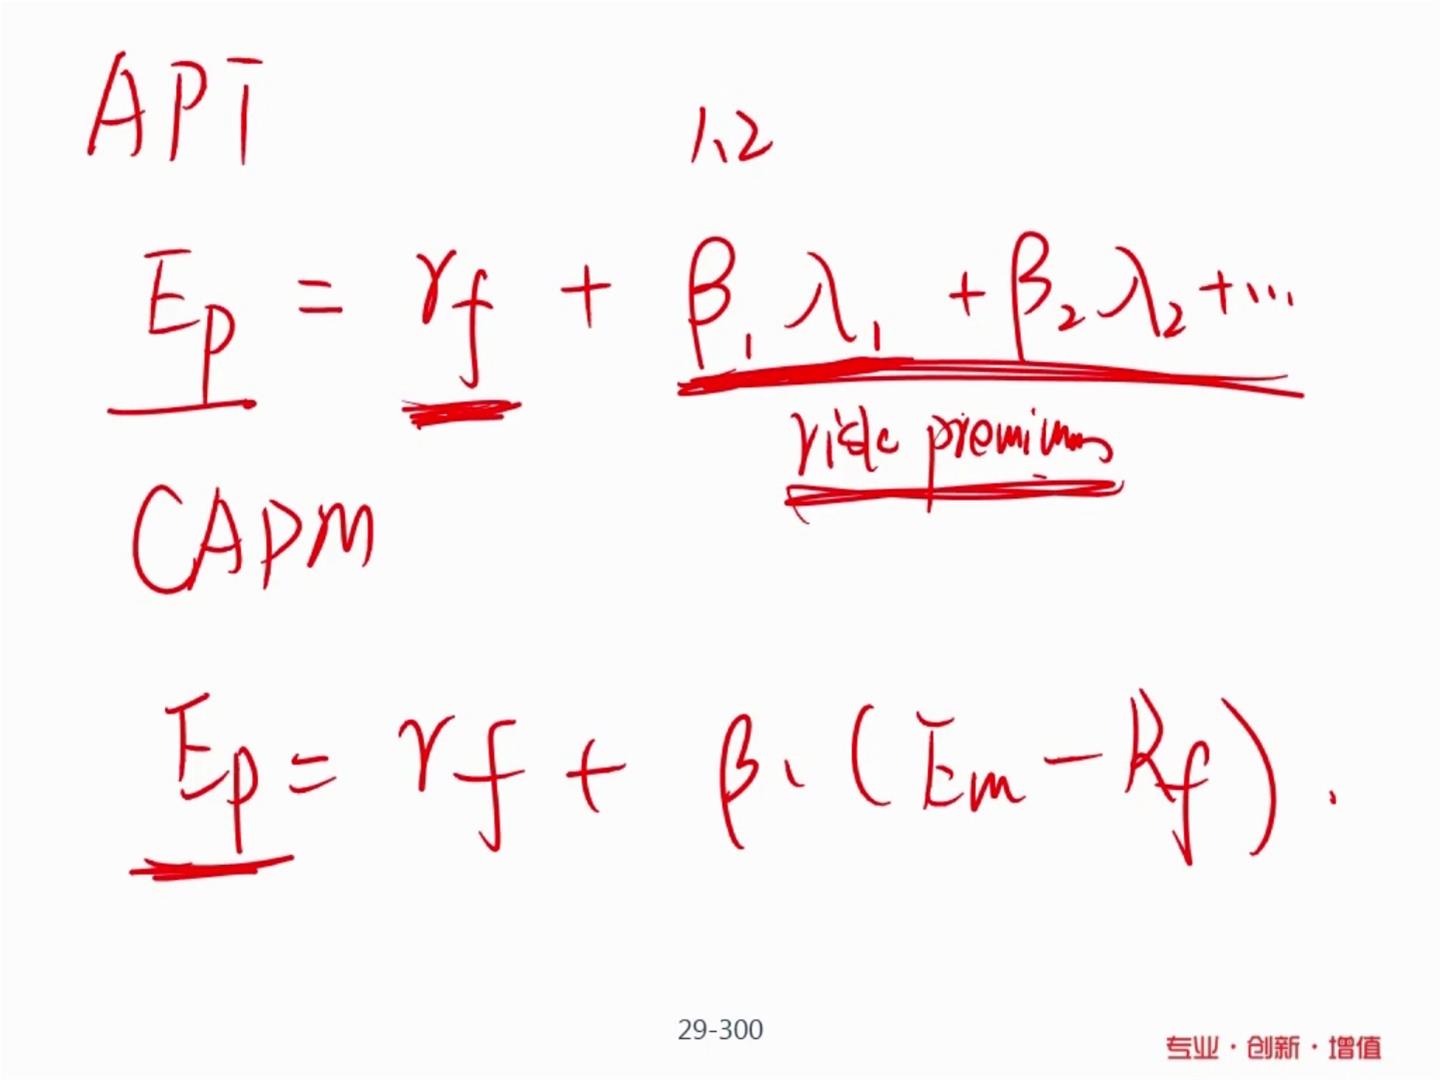 APT
1、2
Ep = rf + β₁ λ₁ + β₂ λ₂ + ...
risk premium
CAPM
Ep = rf + β · (Em - Rf).
29-300
专业·创新·增值